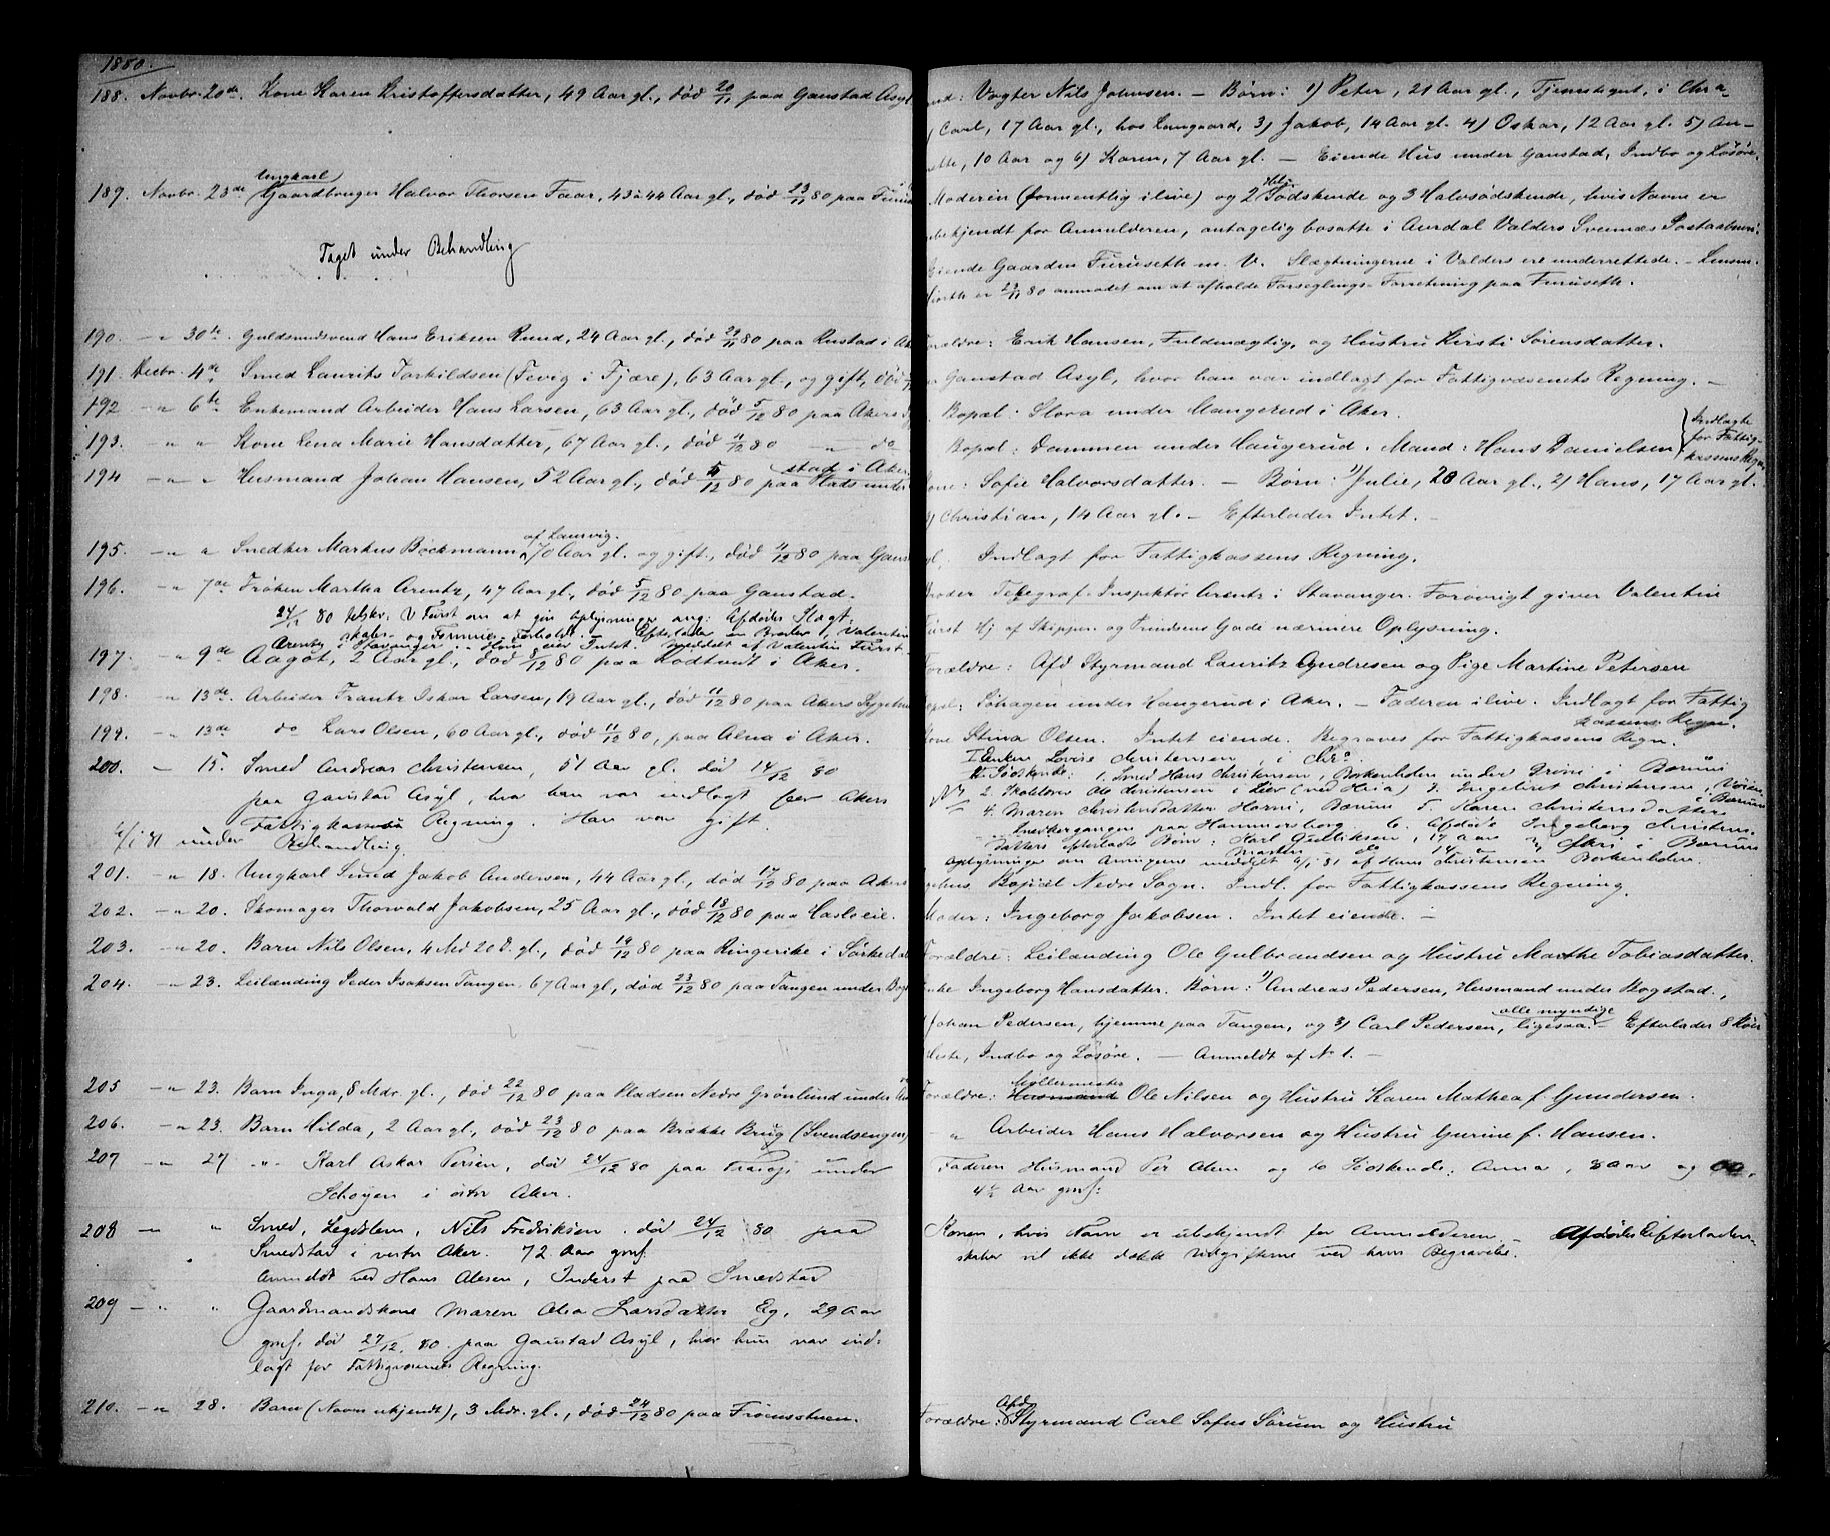 1880.
188. Novbr. 20de. Kone Karen Kristoffersdatter, 49 Aar gl., död 20/11 paa Gaustad Asyl
189. Novbr. 23de Ungkarl Gaardbruger Halvor Thorsen Faar, 43 à 44 Aar gl., död 23/11 80 paa
Taget under Behandling
190. -"- 30te. Guldsmedsvend Hans Eriksen Ruud, 24 Aar gl., död 29/11 80 paa Rustad i
191. Decbr. 4de Smed Laurits Torkildsen (Fevig i Fjære), 63 Aar gl., og gift, död
192 -"- 6te Enkemand Arbeider Hans Larsen, 63 Aar gl., död 5/12 80 paa Akers
193. -"- " Kone Lena Marie Hansdatter, 67 Aar gl., död 4/12 80 -"- do
194 -"- " Husmand Johan Hansen, 52 Aar gl., död 5/12 80 paa Plads under
stad i Aker
195. -"- " Snedker Markus Böckmann af Laurvig, 70 Aar gl. og gift, död 4/12 80 paa
196. -"- 7de Fröken Martha Arentz, 47 Aar gl., död 5/12 80 paa Gaustad.
24/12 80 tilskr. V Fürst om at give oplysninger ang: Afdødes Slægt-
skabs- og Formues-Forholde. - Efterlader en Broder, Valentin
Arentz i Stavanger. - Hun eier Intet. meddelt af Valentin Fürst -
197. -"- 9de Aagot, 2 Aar gl., död 8/12 80 paa Rodtvedt i Aker.
198. -"- 13de. Arbeider Frantz Oskar Larsen, 19 Aar gl., död 11/12 80 paa Akers
199. -"- 13de do Lars Olsen, 60 Aar gl., död 11/12 80, paa Alna i Aker.
200. - 15. Smed Andreas Christensen, 51 Aar gl. död 14/12 80
paa Gaustad Asyl, hvor han var indlagt for Akers
Fattigkasses Regning. Han var gift.
6/1 81 under Behandling
201. -"- 18. Ungkarl Smed Jakob Andersen, 44 Aar gl., död 17/12 80 paa Akers
202. -"- 20. Skomager Thorvald Jakobsen, 25 Aar gl., död 18/12 80 paa Hasleeie.
203. -"- 20. Barn Nils Olsen, 4 Md 20 D. gl., död 19/12 80 paa Ringerike i
204. -"- 23. Leilænding Peder Isaksen Tangen, 67 Aar gl., död 23/12 80 paa Tangen under
205 -"- 23. Barn Inga, 8 Mdr. gl., död 22/12 80 paa Pladsen Nedre Grönlund under
206. -"- 23. Barn Hilda, 2 Aar gl., död 23/12 80 paa Brække Brug (Svendsengen)
207 -"- 27 " Karl Askar Persen, död 24/12 80 paa under
Schøyen i østre Aker.
208 - " Smed, Legdslem, Nils Fredriksen. død 24/12 80 paa
Smedstad i vestre Aker. 72 Aar gml.
Anmeldt ved Hans Olesen, Inderst paa Smedstad
209 - " " Gaardmandskone Maren Olea Larsdatter Eg, 29 Aar
gml. død 27/12 80. paa Gaustad Asyl, hvor hun var ind-
lagt for Fattigvæsenets Regning.
210. -"- 28. Barn (Navn ukjendt), 3 Mdr. gl., död 24/12 80 paa Fröensstuen.
Vogter Nils Johnsen. - Børn: 1) Peter, 21 Aar gl., Tjenestegut, i Chra-
Carl, 17 Aar gl., hos Langaard, 3) Jakob, 14 Aar gl. 4) Oskar, 12 Aar gl. 5) An-
10 Aar og 6) Karen, 7 Aar gl. - Eiende Hus under Gaustad, Indbo og Lösöre.
Moderen (formentlig ilive) og 2 Hel-Södskende og 3 Halvsödskende, hvis Navne er
ubekjendt for Anmelderen, antagelig bosatte i Aurdal Valders Svennæs
Eiende Gaarden Furuseth m. V. Slægtningerne i Valders ere underrettede. - Lensm.
er 23/11 80 anmodet om at afholde Forseglings-Forretning paa Furuseth.
Forældre: Erik Hansen, Fuldmægtig, og Hustru Kirsti Sörensdatter.
Gaustad Asyl, hvor han var indlagt for Fattigvæsenets Regning. -
Bopæl: Slora under Mangerud i Aker.
Bopæl: Dammen under Haugerud. Mand: Hans Danielsen } Indlagte for Fattig-kassens Regn.
Kone: Sofie Halvorsdatter. - Børn: 1) Julie, 20 Aar gl., 2) Hans, 17 Aar gl.
3) Christian, 14 Aar gl. - Efterlader Intet. -
Indlagt for Fattigkassens Regning.
Broder Telegraf-Inspektör Arentz i Stavanger. Forövrigt giver Valentin
Fürst Hj af Skipper- og Prindsens Gade nærmere Oplysning.
Forældre: Afd Styrmand Lauritz Andresen og Pige Martine Petersen
under Haugerud i Aker. - Faderen ilive. Indlagt for Fattig
kassens Regn.
Kone Stina Olsen. Intet eiende. Begraves for Fattigkassens Regn.
I Enken Lovise Christensen, i Chra.
II Södskende: 1. Smed Hans Christensen, Borkenholm under Grini i Bærum
2. Skoleløærer Ole Christensen i Lier (ved Heia) 3. Ingeborg Christensen,
4. Maren Christensdatter Horni, Bærum 5. Karen Christensdatter i Bærum
paa Hammersborg 6. Afdøde Ingeborg Christens-
datters efterladte Børn: Karl Gulliksen, 17 Aar og Martin do 14 " i Bærum
oplysninger om Arvingerne meddelt 6/1 81 af Hans Christensen Borkenholm.
Bopæl Nedre Sogn. Indl. for Fattigkassens Regning.
Moder: Ingeborg Jakobsen. Intet eiende. -
Forældre: Leilænding Ole Gulbrandsen og Hustru Marthe Tobiasdatter.
Enke Ingeborg Hansdatter. Børn: 1) Andreas Pedersen, Husmand under Bogstad,
Johan Pedersen, hjemme paa Tangen, og 3) Carl Pedersen, ligesaa. - alle myndige Efterlader 8 Köer
Indbo og Lösöre. - Anmeldt af No 1. -
Forældre: Möllermester Ole Nilsen og Hustru Karen Mathea f. Gundersen.
" Arbeider Hans Halvorsen og Hustru Gurine f. Hansen.
Faderen Husmand Per Olsen og to Södskende: Anna, 8 Aar og
4½ Aar gml:
Konen, hvis Navn er ubekjendt for Anmelderen. - Afdødes Efterladen-
skaber vil ikke dække Udgifterne ved hans Begravelse.
Forældre: Afd. Styrmand Carl Sofus Sörum og Hustru